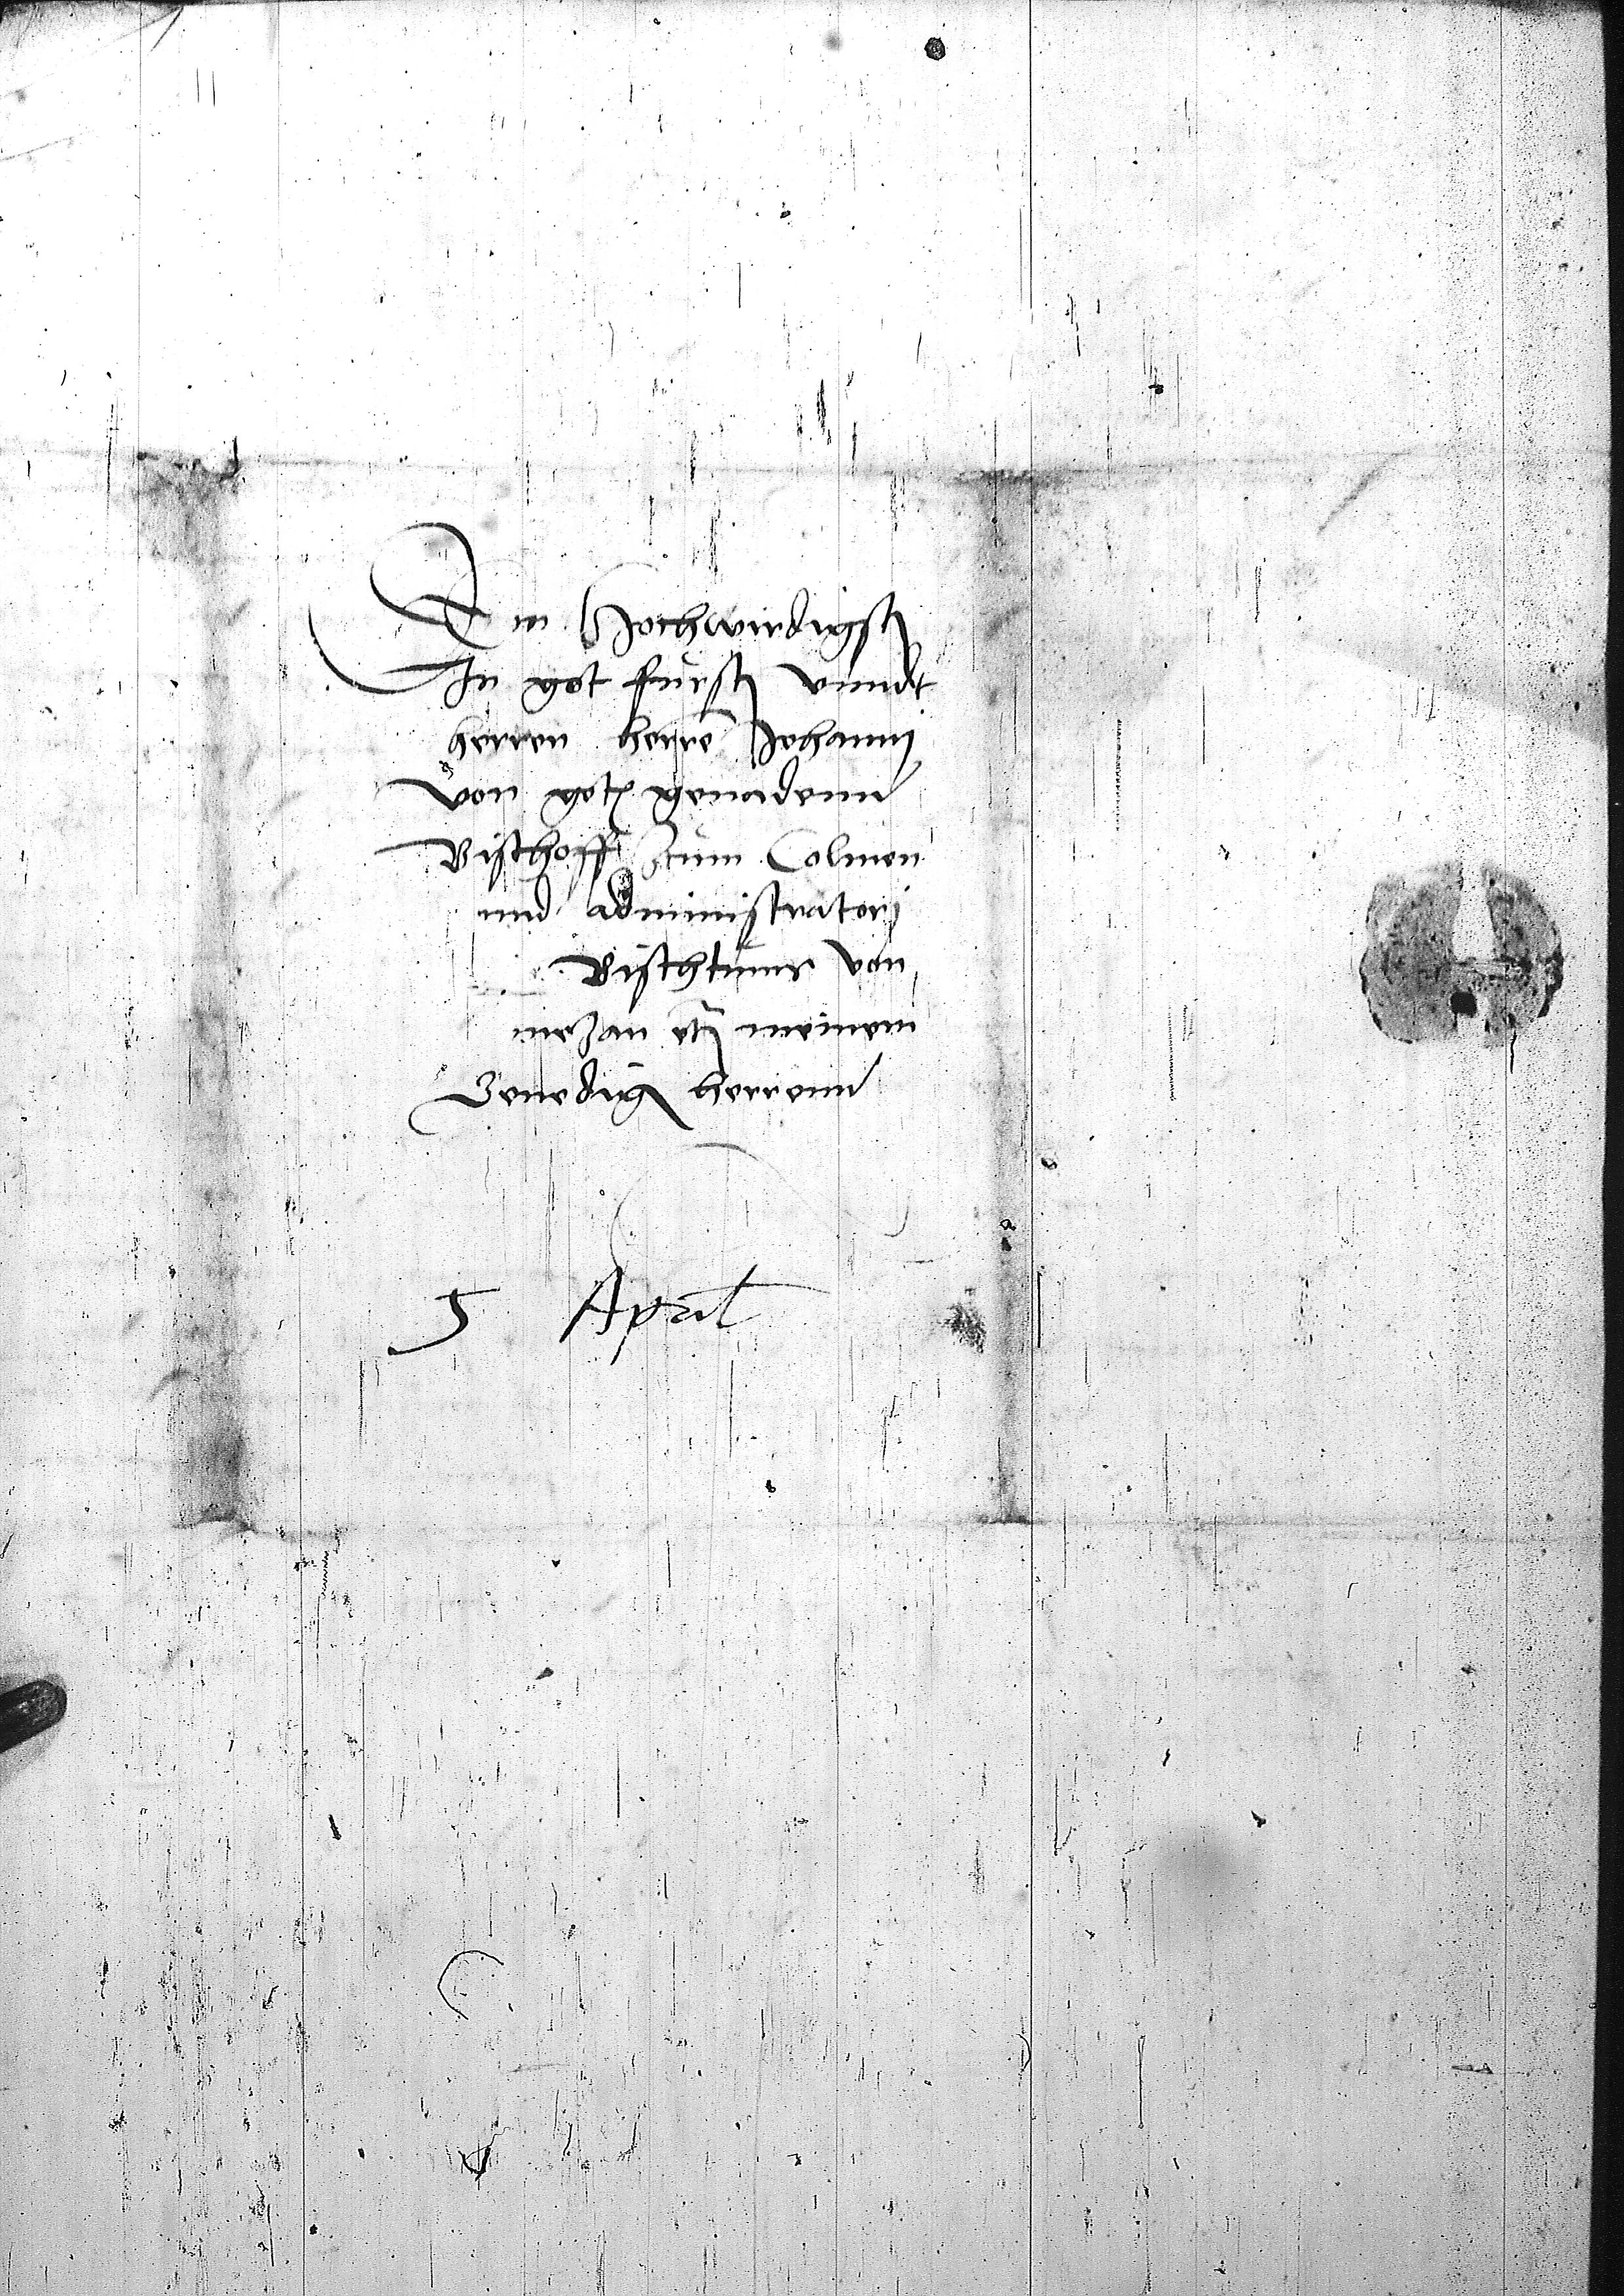 Dem Hochwirdigst
In got furst vnndt
herren herrē Johannj
von gotz genadenn
Bischoff zum Colmen
vnd administratorj
Bischtumr von
mezan etz meinem
Genedig herrenn
5 April